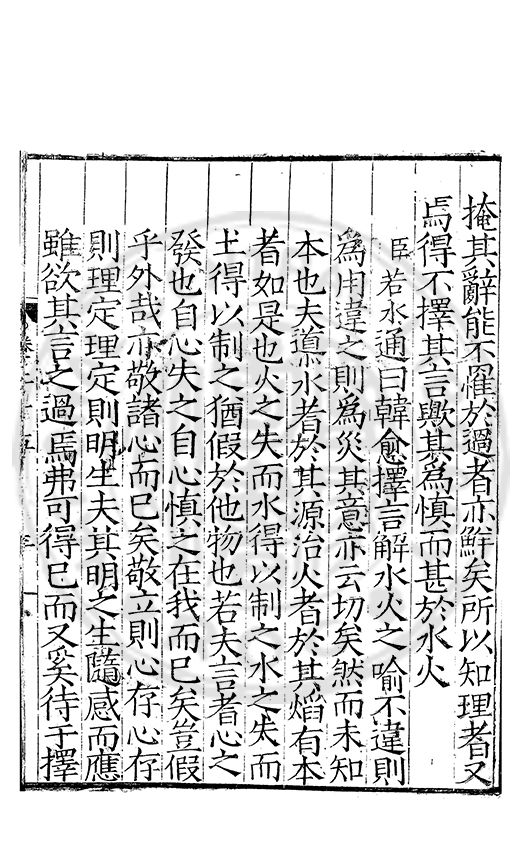 掩其辭能不罹於過者亦鮮矣所以知理者又
焉得不擇其言歟其為慎而甚於水火
臣若水通曰韓愈擇言解水火之喻不違則
為用違之則為災其意亦云切矣然而未知
本也夫導水者於其源治火者於其熖有本
者如是也火之失而水得以制之水之失而
土得以制之猶假於他物也若夫言者心之
發也自心失之自心慎之在我而已矣豈假
乎外哉亦敬諸心而已矣敬立則心存心存
則理定理定則明生夫其明之生隨感而應
雖欲其言之過焉弗可得已而又奚待于擇